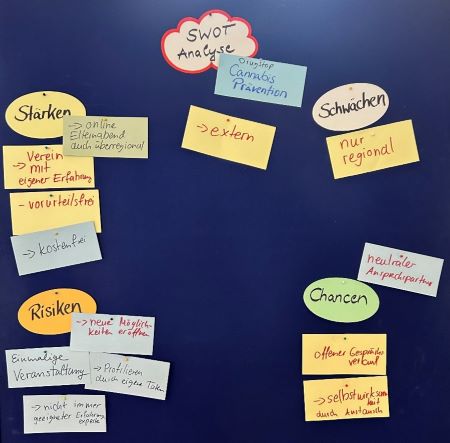 SWOT
Analyse
Drugstop
Cannabis
Prävention
→ extern
Stärken
→ online
Elternabend
auch überregional
→ Verein
mit
eigener Erfahrung
- vorurteilsfrei
→ kostenfrei
Schwächen
nur
regional
Risiken
→ neue Möglich-
keiten eröffnen
Einmalige
Veranstaltung
→ Profilieren
durch eigene Taten
→ nicht immer
geeigneter Erfahrungs
experte
neutraler
Ansprechpartner
Chancen
offener Gesprächs
verlauf
→ selbstwirksam
keit
durch Austausch